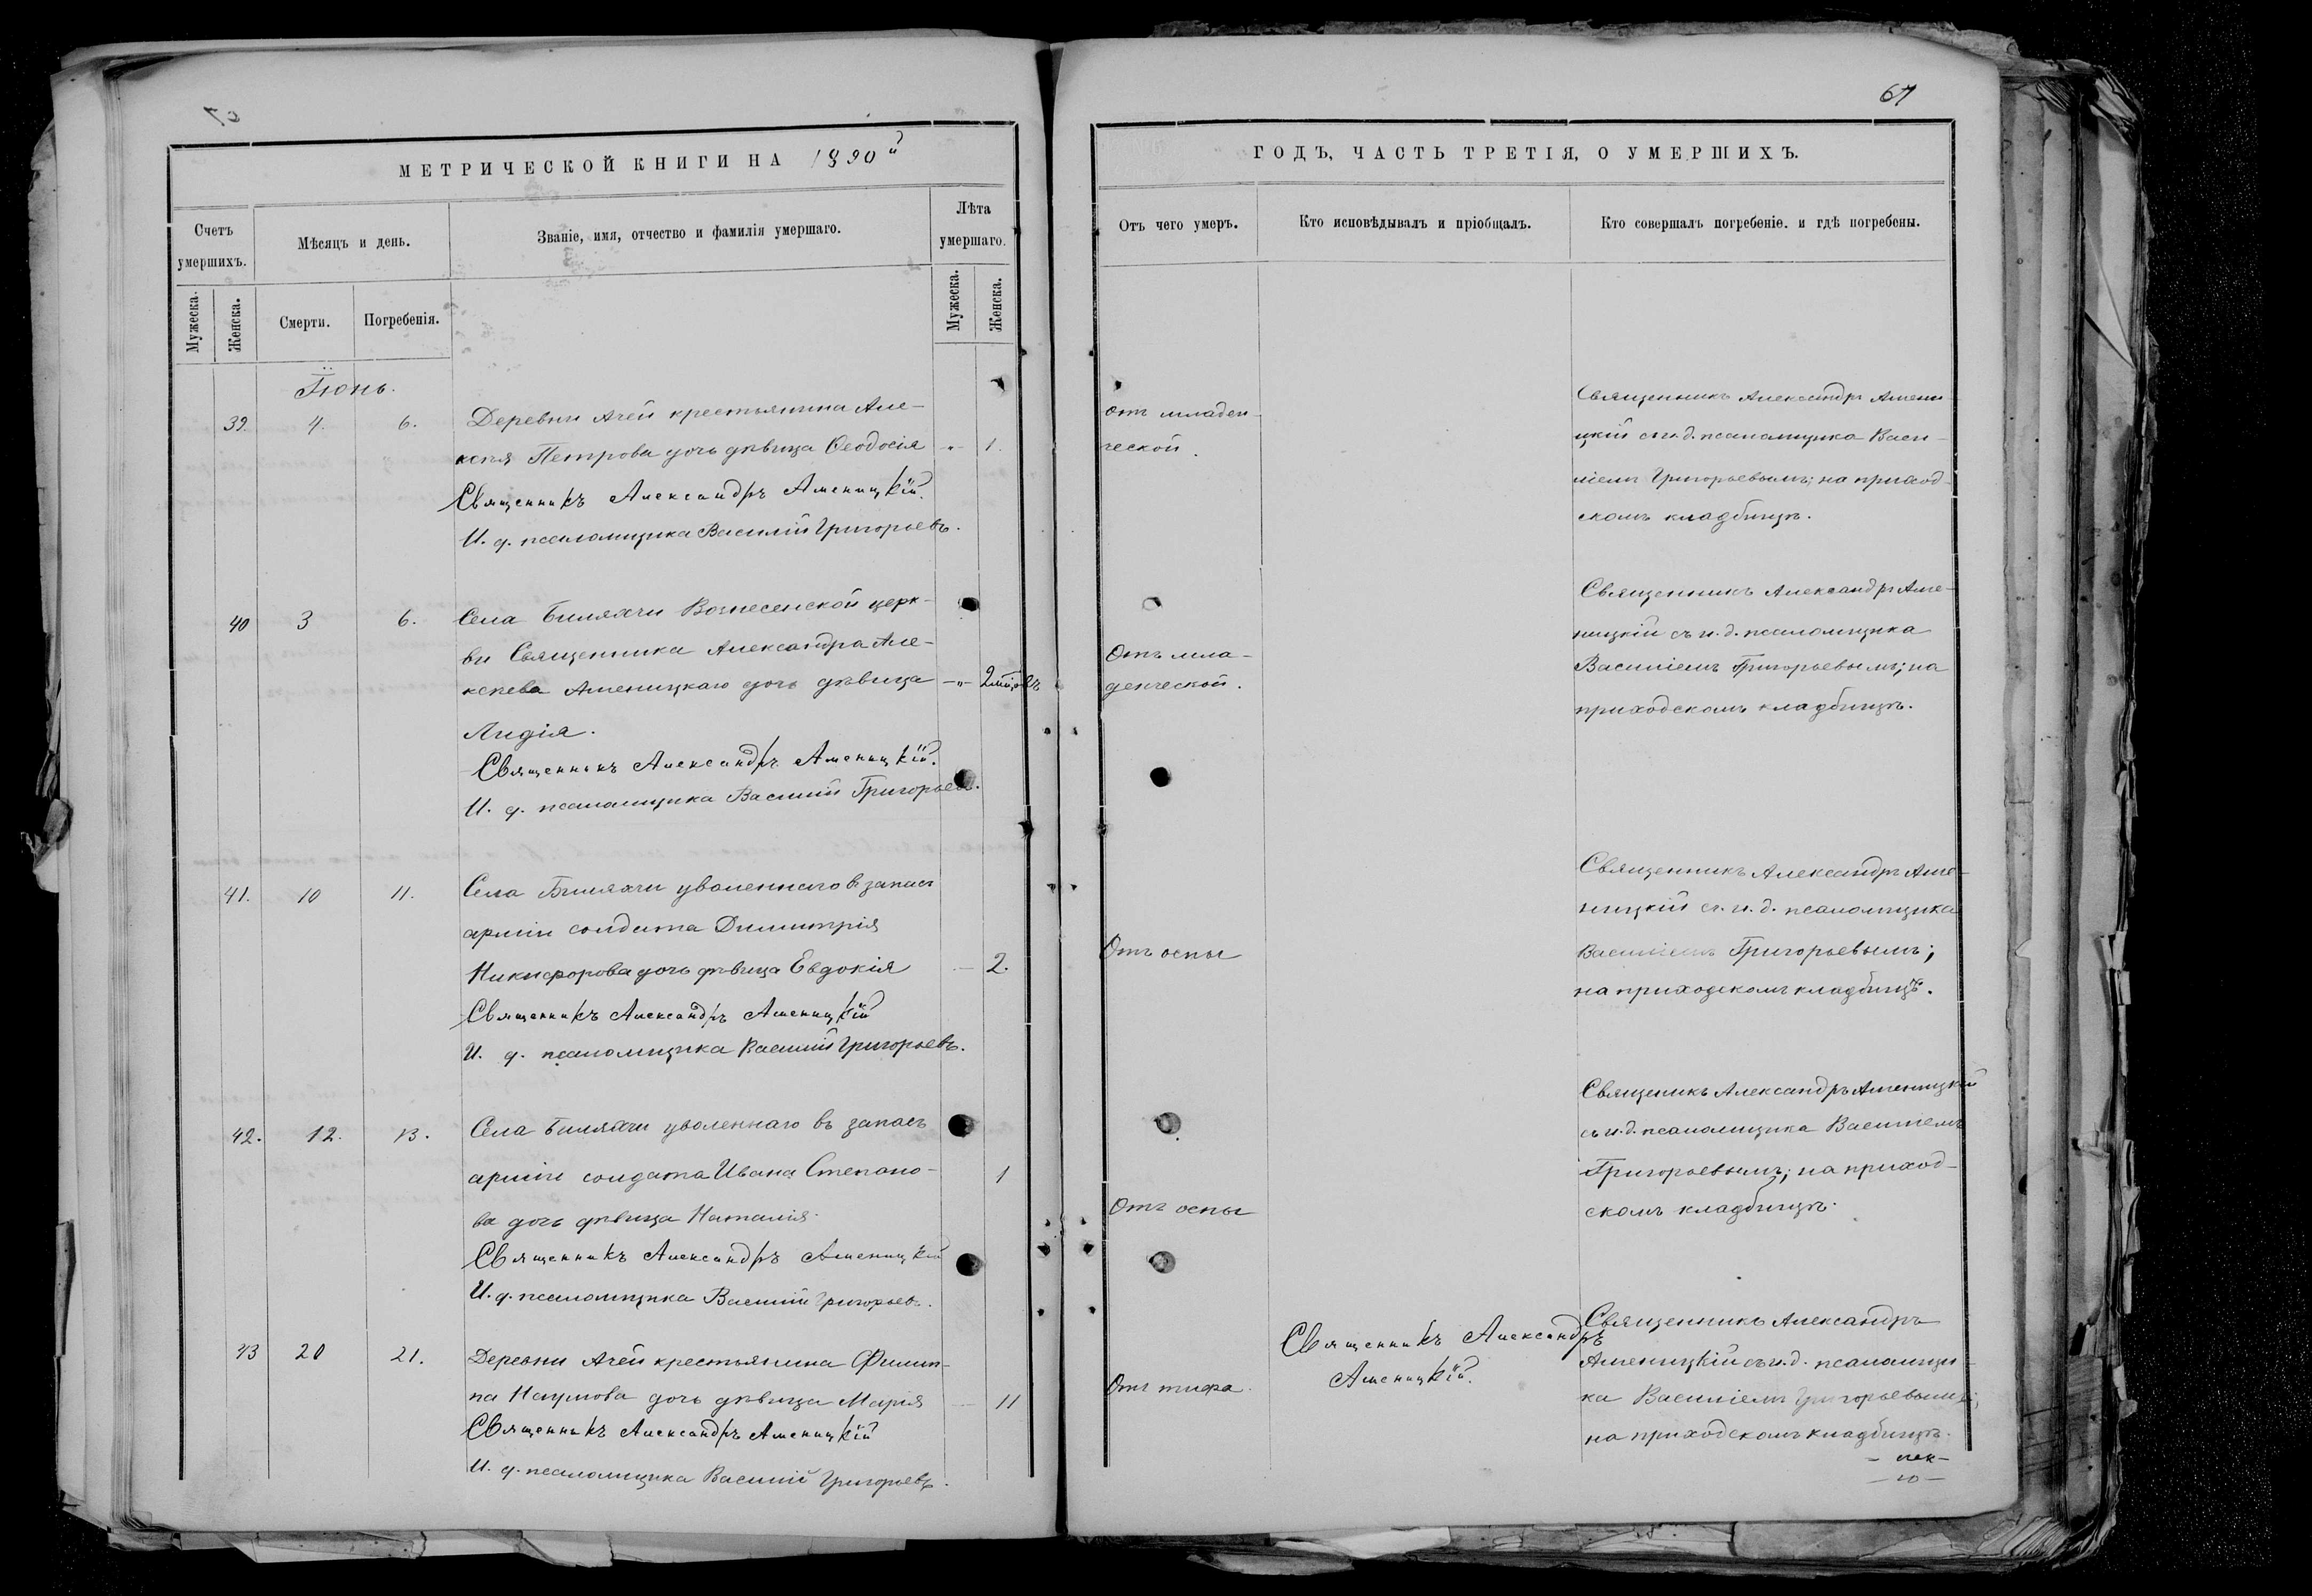 67
МЕТРИЧЕСКОЙ КНИГИ НА 1890й
Счетъ умершихъ.
Мѣсяцъ и день.
Званіе, имя, отчество и фамилія умершаго.
Лѣта умершаго.
Мужеска.
Женска.
Смерти.
Погребенія.
Мужеска.
Женска.
Іюнь.
39. 4. 6. Деревни Ачей крестьянина Але-
ксѣя Петрова дочь дѣвица Ѳеодосія -„- 1.
Священникъ Александръ Аменицкій.
И. д. псаломщика Василій Григорьевъ.
40 3 6. Села Билярчи Вознесенской церк-
ви Священника Александра Але-
ксѣева Аменицкаго дочь дѣвица -„- 2 мѣс.
Лидія.
Священникъ Александръ Аменицкій.
И. д. псаломщика Василій Григорьевъ.
41. 10 11. Села уволеннаго въ запасъ
арміи солдата Димитрія
Никифорова дочь дѣвица Евдокія - 2.
Священникъ Александръ Аменицкій
И. д. псаломщика Василій Григорьевъ.
42. 12. 13. Села уволеннаго въ запасъ
арміи солдата Ивана Степано- 1
ва дочь дѣвица Наталія.
Священникъ Александръ Аменицкій
И. д. псаломщика Василій Григорьевъ.
43 20 21. Деревни Ачей крестьянина Филип-
па Наумова дочь дѣвица Марія - 11
Священникъ Александръ Аменицкій
И. д. псаломщика Василій Григорьевъ.
67
ГОДЪ, ЧАСТЬ ТРЕТІЯ, О УМЕРШИХЪ.
Отъ чего умеръ.
Кто исповѣдывалъ и пріобщалъ.
Кто совершалъ погребеніе. и гдѣ погребены.
Отъ младен-
ческой.
Священникъ Александръ Амени-
цкій съ и. д. псаломщика Васи-
ліемъ Григорьевымъ; на приход-
скомъ кладбищѣ.
Отъ мла-
денческой.
Священникъ Александръ Аме-
ницкій съ и. д. псаломщика
Василіемъ Григорьевымъ; на
приходскомъ кладбищѣ.
Отъ оспы
Священникъ Александръ Аме-
ницкій съ и. д. псаломщика
Василіемъ Григорьевымъ;
на приходскомъ кладбищѣ.
Отъ оспы
Священикъ Александръ Аменицкій
съ и. д. псаломщика Василіемъ
Григорьевымъ; на приход-
скомъ кладбищѣ.
Отъ тифа.
Священникъ Александръ
Аменицкій.
Священникъ Александръ
Аменицкій съ и. д. псаломщи-
ка Василіемъ Григорьевымъ;
на приходскомъ кладбищѣ.